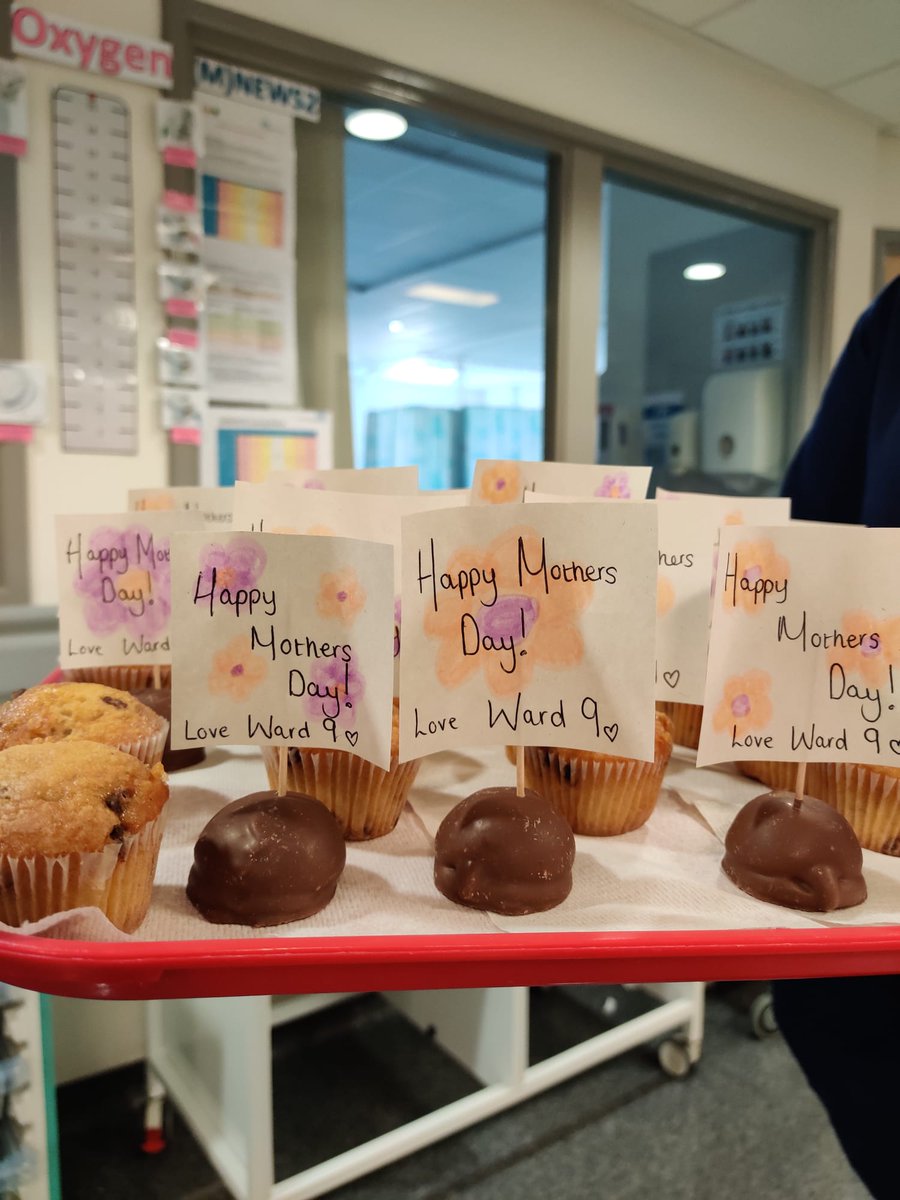 Oxygen
(M)NEWS2
Happy Mot
Day!
Love Ward
Happy
Mothers
Day!
Love Ward 9♡
Happy Mothers
Day!
Love Ward 9♡
hers
♡
Happy
Mothers
Day!
Love Ward 9♡